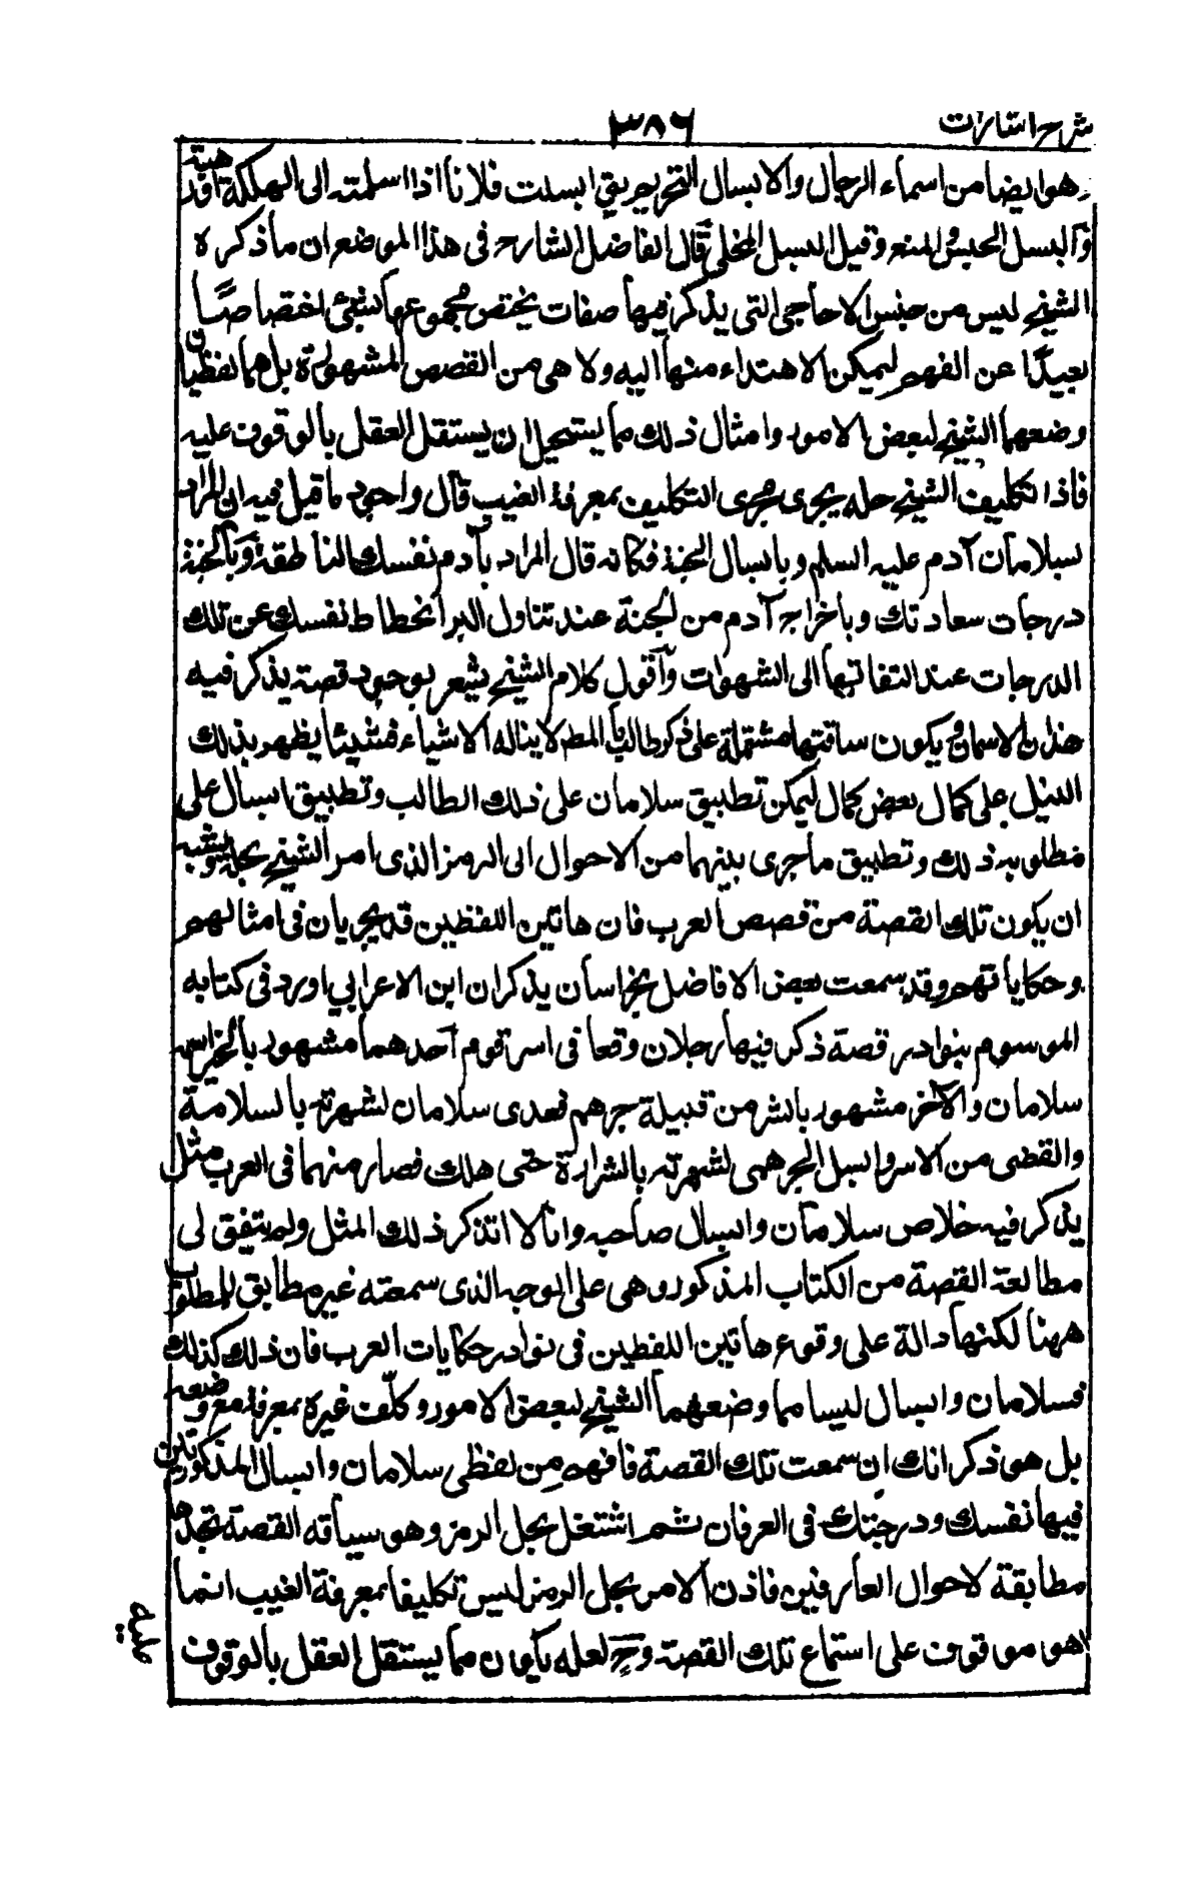 شرح اشارات
٣٨٦
وهو ايضا من اسماء الرجال والابسال التحريم يقي ابسلت فلانا اذا اسلمته الى الهلكة او رهنته
والبسل الحبس والمنع وقيل البسل المخلى قال الفاضل الشارح فى هذا الموضع ان ما ذكره
الشيخ ليس من جنس الاحاجى التى يذكر فيها صفات يختص مجموعها بشئ اختصاصًا
بعيدًا عن الفهم ليمكن الاهتداء منها اليه ولا هى من القصص المشهورة بل هما لفظتان
وضعهما الشيخ لبعض الامور وامثال ذلك مما يستحيل ان يستقل العقل بالوقوف عليه
فاذا تكليف الشيخ حله يجرى مجرى التكليف بمعرفة الغيب قال واجود ما قيل فيه ان المراد
بسلامان آدم عليه السلم وبابسال الجنة فكانه قال المراد بآدم نفسك الناطقة وبالجنة
درجات سعادتك وباخراج آدم من الجنة عند تناول البر انحطاط نفسك عن تلك
الدرجات عند التفاتها الى الشهوات واقول كلام الشيخ يشعر بوجود قصة يذكر فيه
هذان الاسمان ويكون سياقتها مشتملة على ذكر طالب ما لمط لا يناله الا شياء فشيئا يظهر بذلك
النيل على كمال بعض كمال ليمكن تطبيق سلامان على ذلك الطالب وتطبيق ابسال على
مطلوبه ذلك وتطبيق ما جرى بينهما من الاحوال الى الرمز الذى امر الشيخ بحله ويشبه
ان يكون تلك القصة من قصص العرب فان هاتين اللفظين قد يجريان فى امثالهم
وحكاياتهم وقد سمعت بعض الافاضل بخراسان يذكر ان ابن الاعرابي اورد فى كتابه
الموسوم بنوادر قصة ذكر فيها رجلان وقعا فى اسر قوم احدهما مشهور بالخير اسمه
سلامان والآخر مشهور بالشر من قبيلة جرهم ففدى سلامان لشهرته بالسلامة
والقضى من الاسر وابسل الجرهمى لشهرته بالشرارة حتى هلك فصار منهما فى العرب مثل
يذكر فيه خلاص سلامان وابسال صاحبه وانا لا اتذكر ذلك المثل ولم يتفق لى
مطالعة القصة من الكتاب المذكور وهى على الوجه الذى سمعته غير مطابق للمطلوب
ههنا لكنها دالة على وقوع هاتين اللفظين فى نوادر حكايات العرب فان ذلك كذلك
فسلامان وابسال ليسا مما وضعهما الشيخ لبعض الامور وكلّف غيره بمعرفة مع وضعه
بل هو ذكر انك ان سمعت تلك القصة فافهم من لفظى سلامان وابسال المذكورتين
فيها نفسك ودرجتك فى العرفان ثم اشتغل بحل الرمز وهو سياقه القصة تجدها
مطابقة لاحوال العارفين فاذن الامر بحل الرمز ليس تكليفا بمعرفة الغيب انما
هو موقوف على استماع تلك القصة وح لعله يكون مما يستقل العقل بالوقوف
عليه